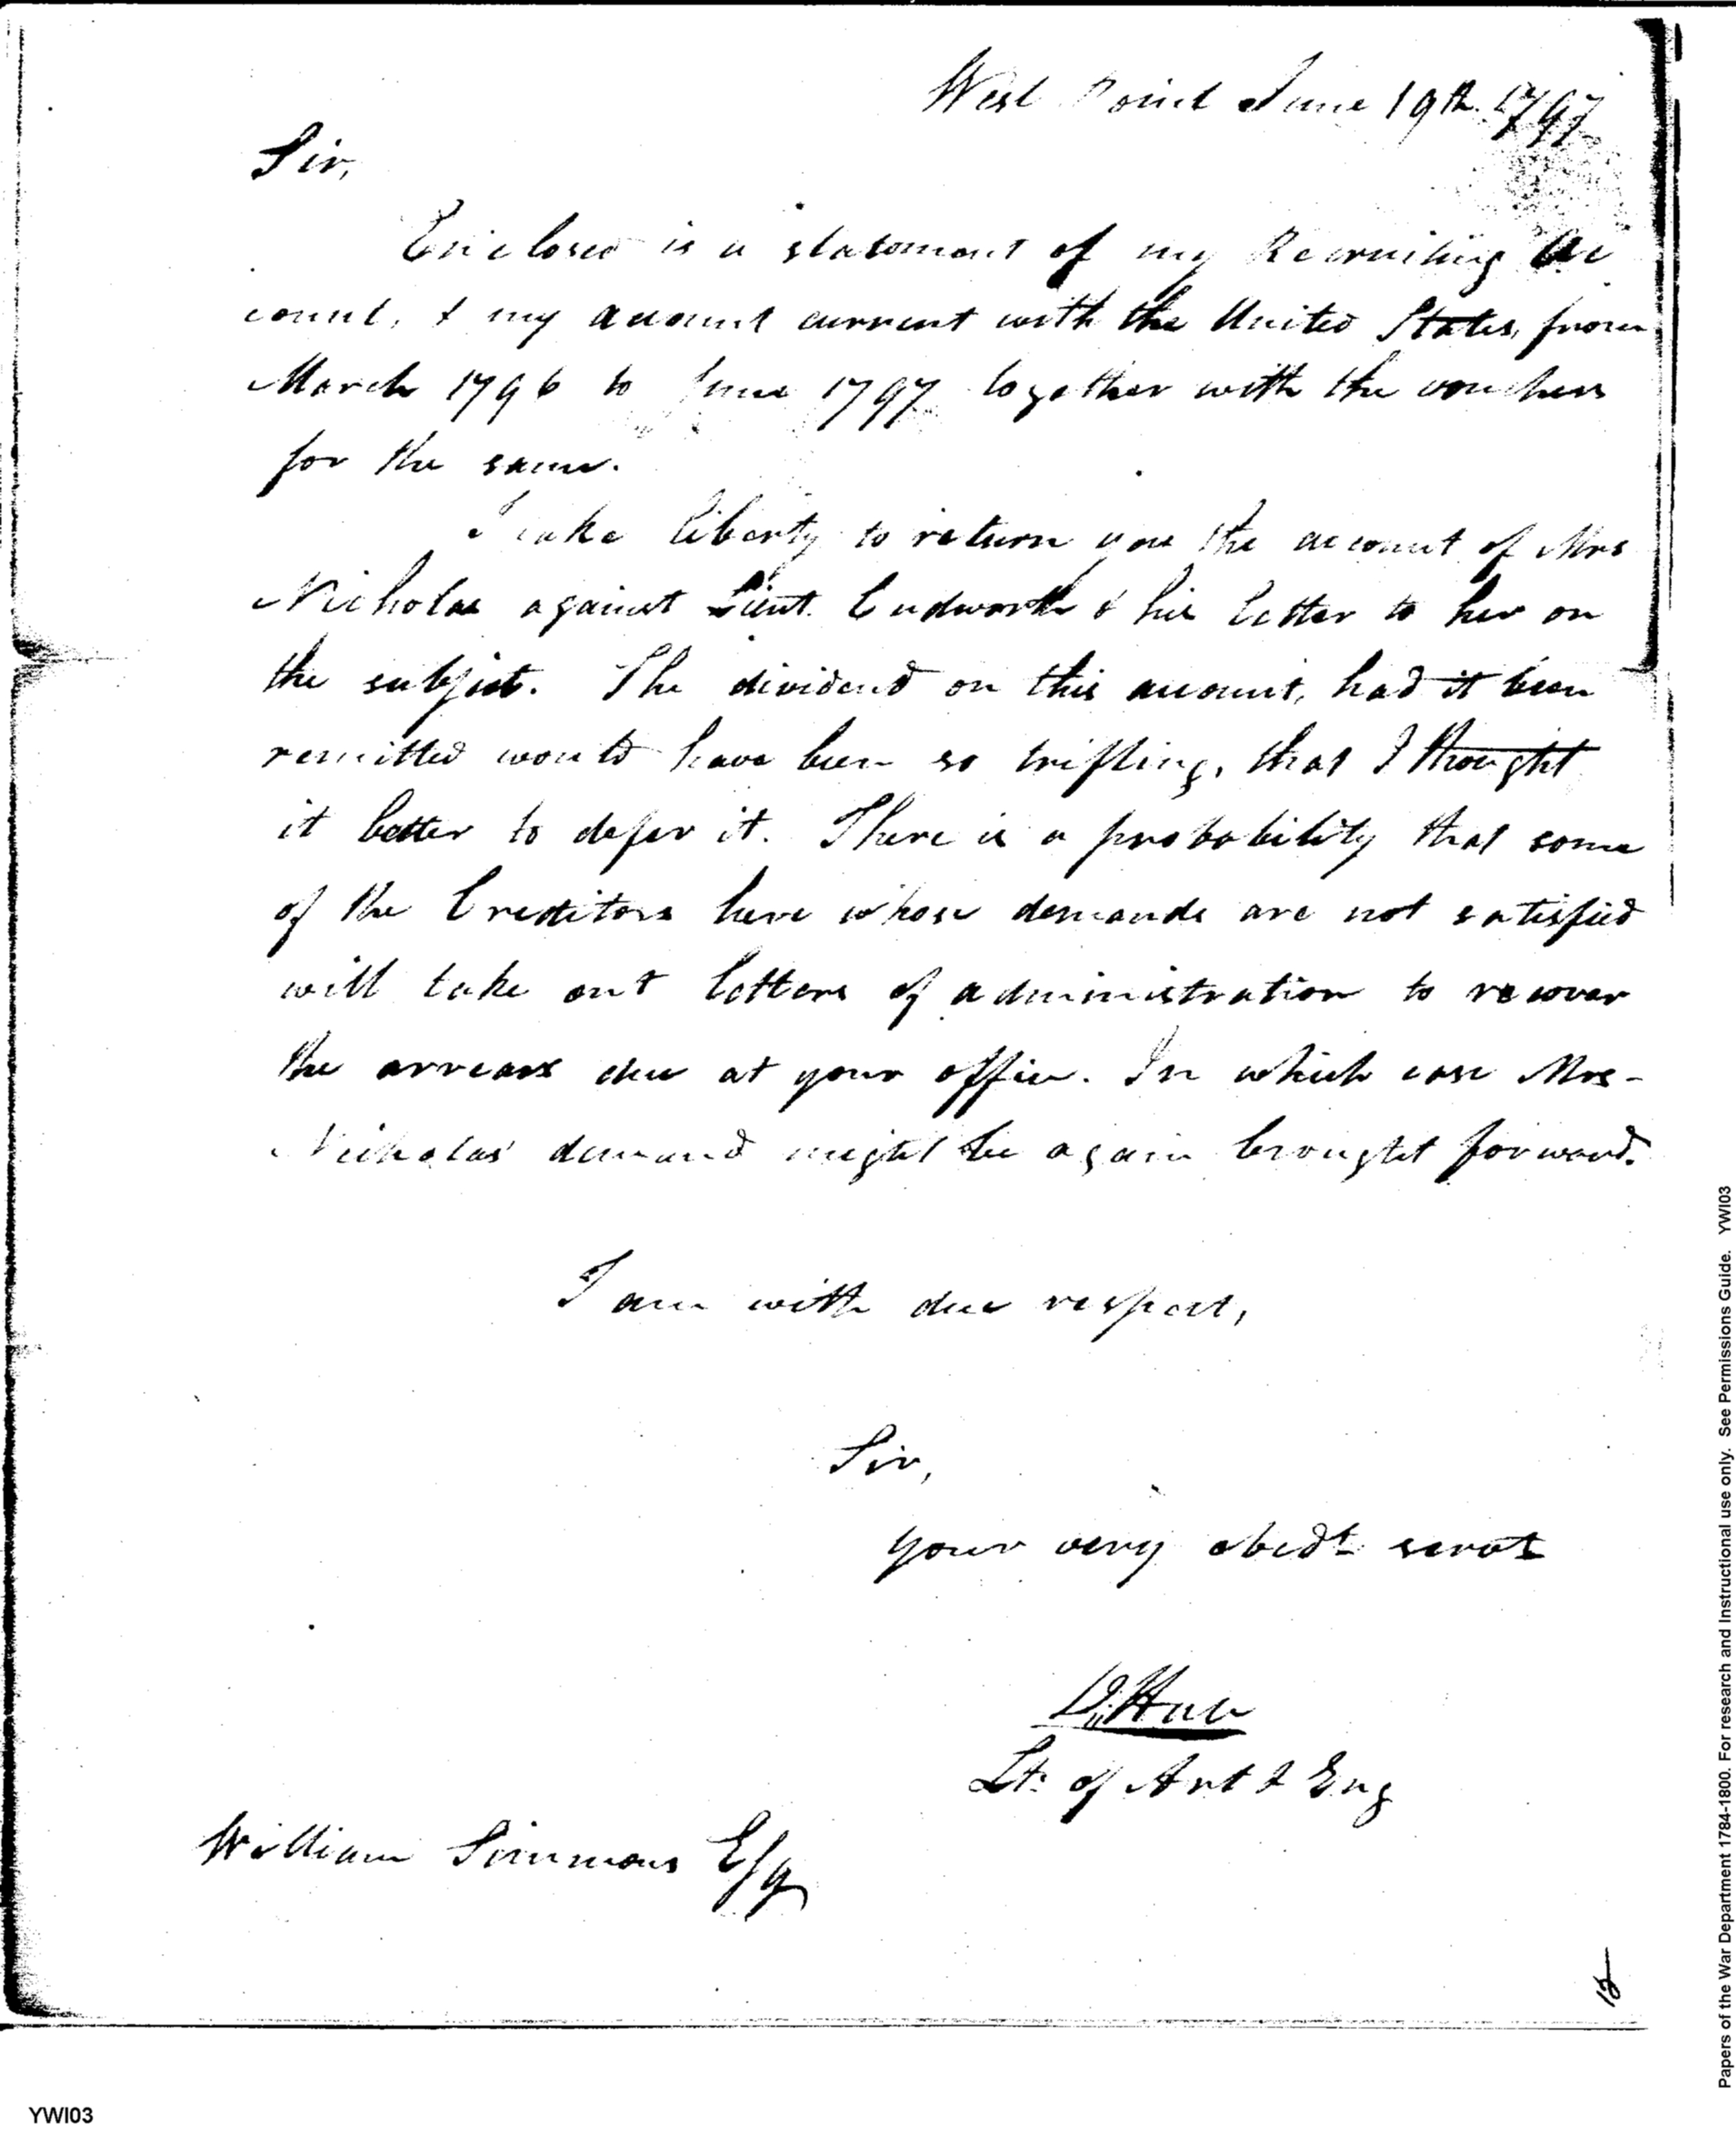 West Point June 19th 1797
Sir,
Enclosed is a statement of my Recruiting Ac
count, & my account current with the United States, from
March 1796 to June 1797 together with the vouchers
for the same.
I take liberty to return you the account of Mrs
Nicholas against Lieut. Cudworth & his letter to her on
the subject. The dividend on this account, had it been
remitted would have been so trifling, that I thought
it better to defer it. There is a probability that some
of the Creditors here whose demands are not satisfied
will take out letters of administration to recover
the arrears due at your office. In which case Mrs-
Nicholas' demand might be again brought forward.
I am with due respect,
Sir,
your very obedt servt
Lt. of Art & Eng
William Simmons Esq
15
Papers of the War Department 1784-1800. For research and Instructional use only. See Permissions Guide. YWI03
YWI03